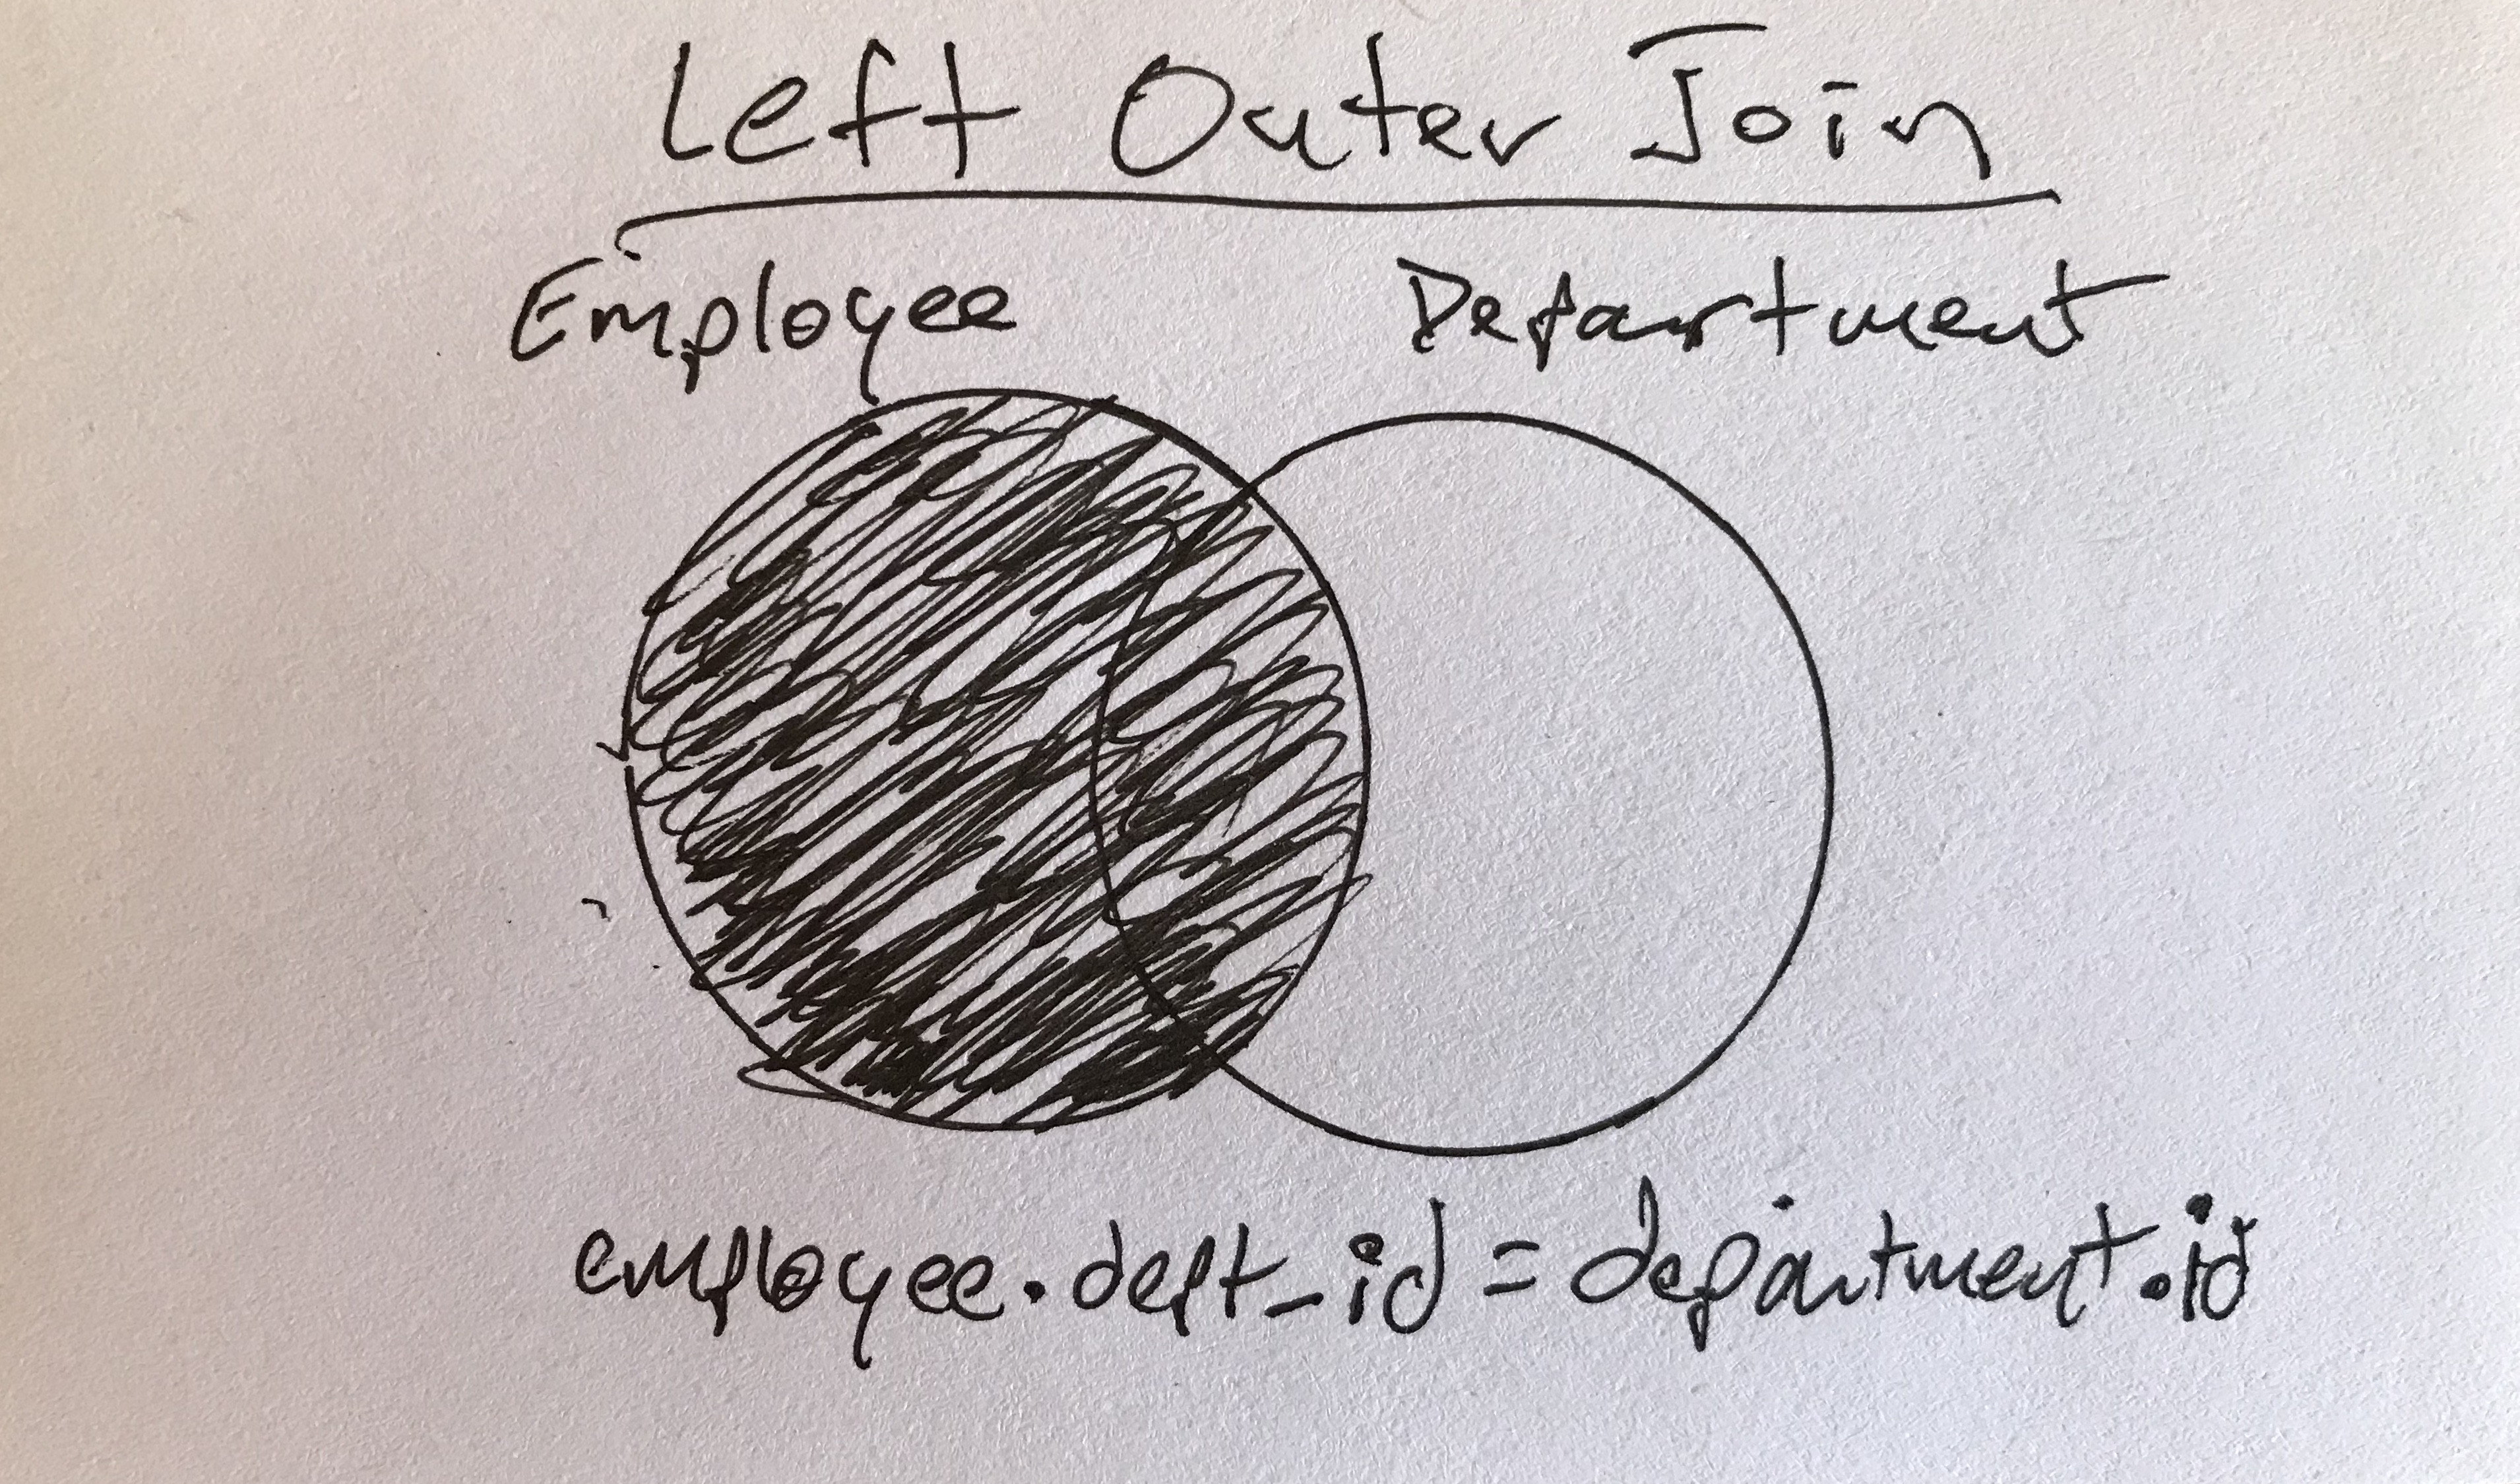 Left Outer Join
Employee Department
employee.dept_id = department.id